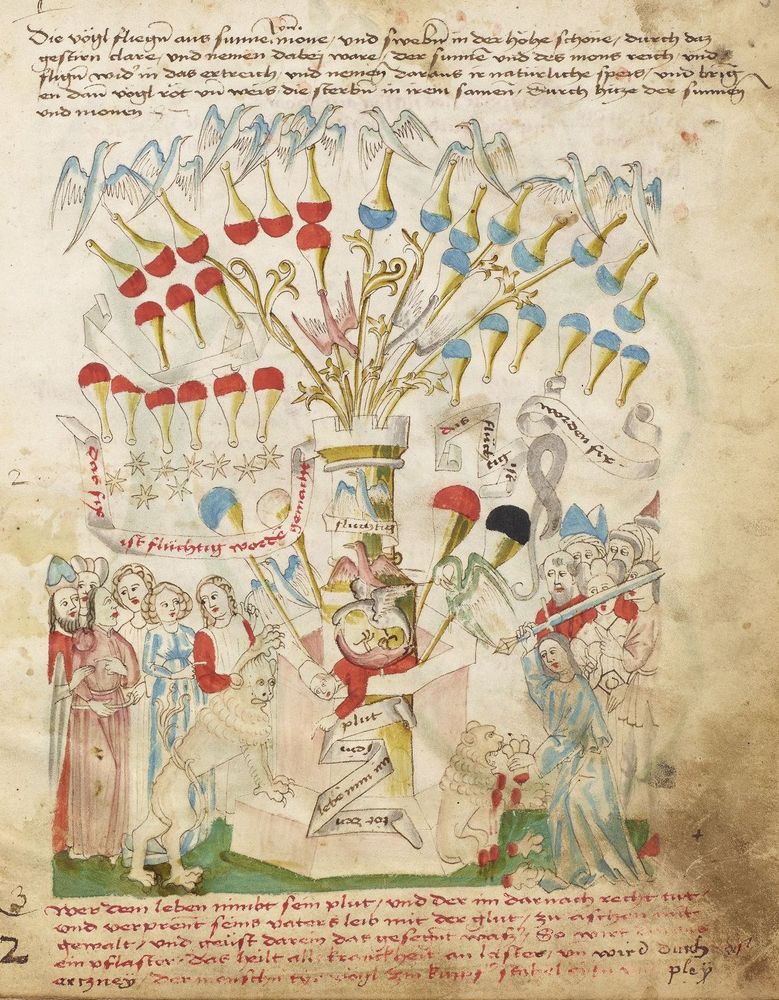 Die vögl fliegn aus sunne von mone / und swebn in der höhe schöne / durch daz
gestirn clare / und nemen dabej ware / der sunnen und des mons reich / und
flign wid in das ertreich / und nemen daraus ir natürliche speis / und bring
en dan vögl röt un weis die sterbn in irem samen / Durch hitze der sunnen
und monen
das fix
ist flüchtig worde
gemacht
das
flüchtig
ist
worden fix
flüchtig
plut
lebe nim im
tot
wer dem leben nimbt sein plut / und der im darnach recht tut /
und verprent seins vaters leib mit der glut / zu aschen mit
gewalt / und geüst darein das gesegnt wasz / So wirt
ein pflaster / das heilt all kranckheit an laster / un wird durch
ertzney / der mensch vögl
pley
2
3
2